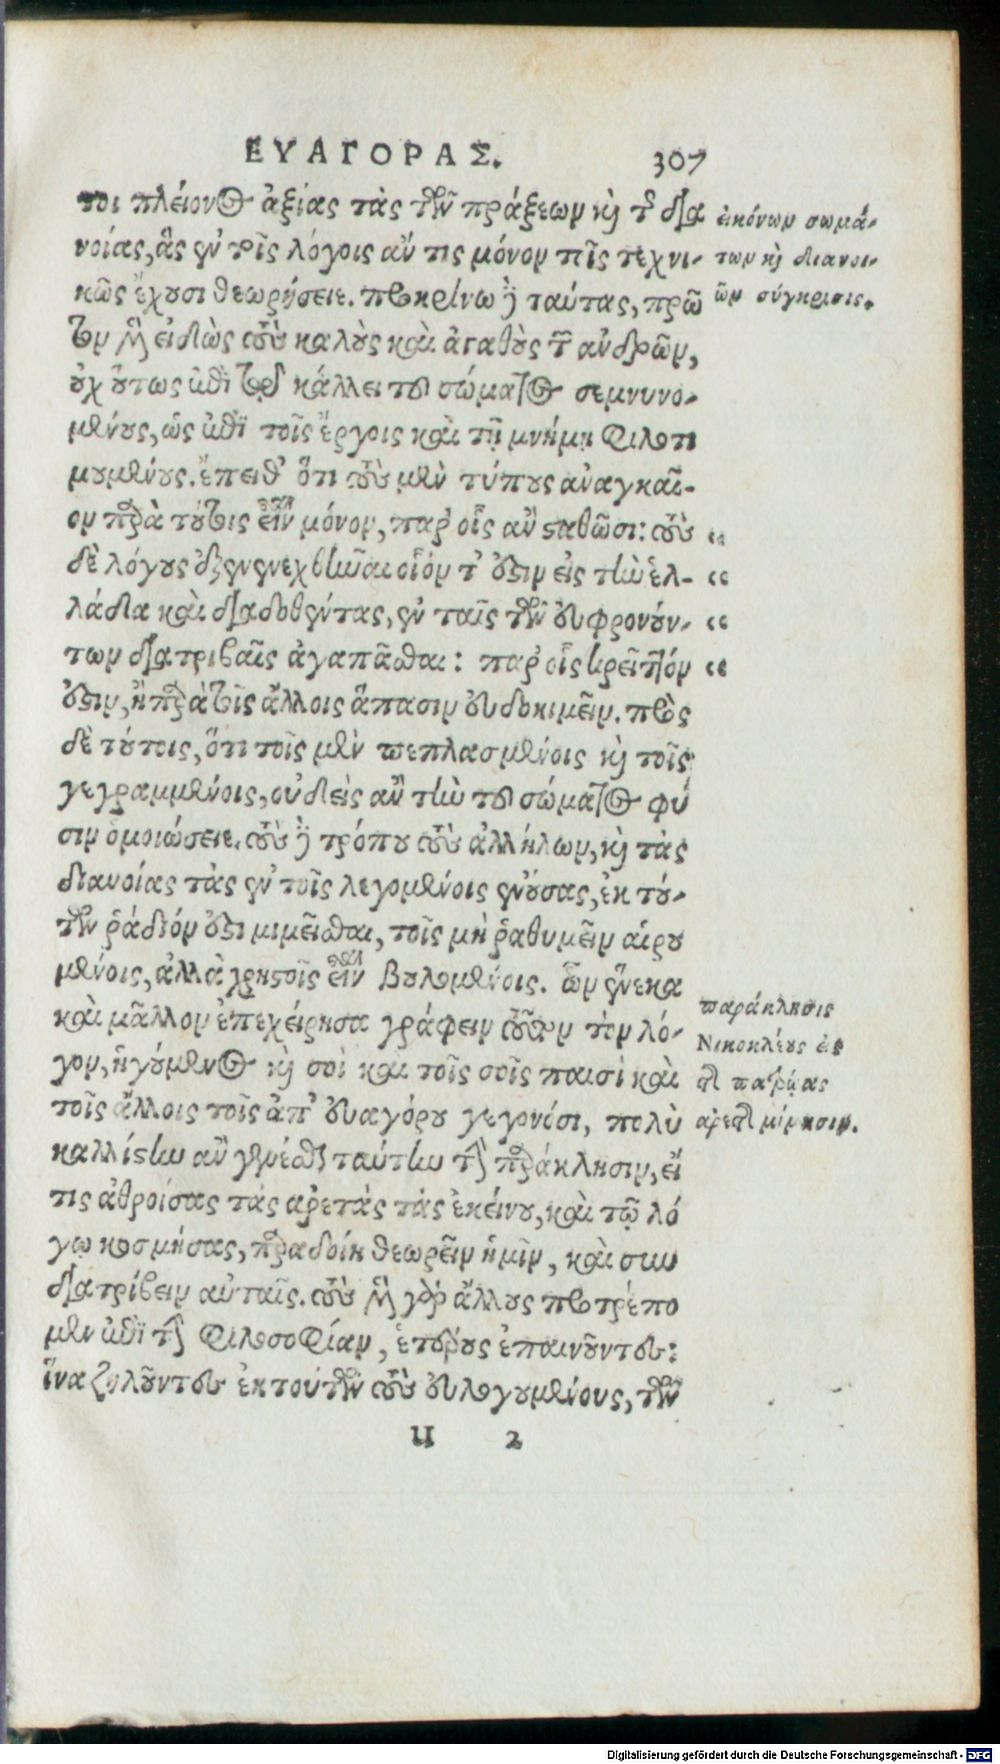 ΕΥΑΓΟΡΑΣ. 307
τοι πλείονος ἀξίας τὰς τῶν πράξεων καὶ τῆς δια
νοίας, ἃς ἐν τοῖς λόγοις ἄν τις μόνον τοῖς τεχνι-
κῶς ἔχουσι θεωρήσειε. προκρίνω δὲ ταύτας, πρῶ
τον μὲν εἰδὼς τοὺς καλοὺς καὶ ἀγαθοὺς τῶν ἀνδρῶν,
οὐχ οὕτως ἐπὶ τῷ κάλλει τοῦ σώματος σεμνυνο-
μένους, ὡς ἐπὶ τοῖς ἔργοις καὶ τῇ μνήμῃ φιλοτι
μουμένους. ἔπειθ' ὅτι τοὺς μὲν τύπους ἀναγκαῖ-
ον παρὰ τούτοις εἶναι μόνον, παρ' οἷς ἂν σταθῶσι: τοὺς
δὲ λόγους ἐξενενεχθῆναι οἷόν τ' ἐστὶν εἰς τὴν ἑλ-
λάδα καὶ διαδοθέντας, ἐν ταῖς τῶν εὐφρονούν-
των διατριβαῖς ἀγαπᾶσθαι: παρ' οἷς κρεῖττόν
ἐστιν, ἢ παρὰ τοῖς ἄλλοις ἅπασιν εὐδοκιμεῖν. πρὸς
δὲ τούτοις, ὅτι τοῖς μὲν πεπλασμένοις καὶ τοῖς
γεγραμμένοις, οὐδεὶς ἂν τὴν τοῦ σώματος φύ
σιν ὁμοιώσειε. τοὺς δὲ τρόπου τοὺς ἀλλήλων, καὶ τὰς
διανοίας τὰς ἐν τοῖς λεγομένοις ἐνούσας, ἐκ τού-
των ῥάδιόν ἐστι μιμεῖσθαι, τοῖς μὴ ῥαθυμεῖν αἱρου
μένοις, ἀλλὰ χρηστοῖς εἶναι βουλομένοις. ὧν ἕνεκα
καὶ μᾶλλον ἐπεχείρησα γράφειν τοῦτον τὸν λό-
γον, ἡγούμενος καὶ σοὶ καὶ τοῖς σοῖς παισὶ καὶ
τοῖς ἄλλοις τοῖς ἀπ' εὐαγόρου γεγονόσι, πολὺ
καλλίστην ἂν γενέσθαι ταύτην τὴν παράκλησιν, εἴ
τις ἀθροίσας τὰς ἀρετὰς τὰς ἐκείνου, καὶ τῷ λό
γῳ κοσμήσας, παραδοίη θεωρεῖν ἡμῖν, καὶ συν
διατρίβειν αὐταῖς. τοὺς μὲν γὰρ ἄλλους προτρέπο
μεν ἐπὶ τὴν φιλοσοφίαν, ἑτέρους ἐπαινοῦντες:
ἵνα ζηλοῦντες ἐκ τούτων τοὺς εὐλογουμένους, τῶν
u 2
εἰκόνων σωμά-
των καὶ διανοι-
ῶν σύγκρισις.
παράκλησις
Νικοκλέους εἰς
τὴν πατρῴας
ἀρετῆς μίμησιν.
Digitalisierung gefördert durch die Deutsche Forschungsgemeinschaft - DFG